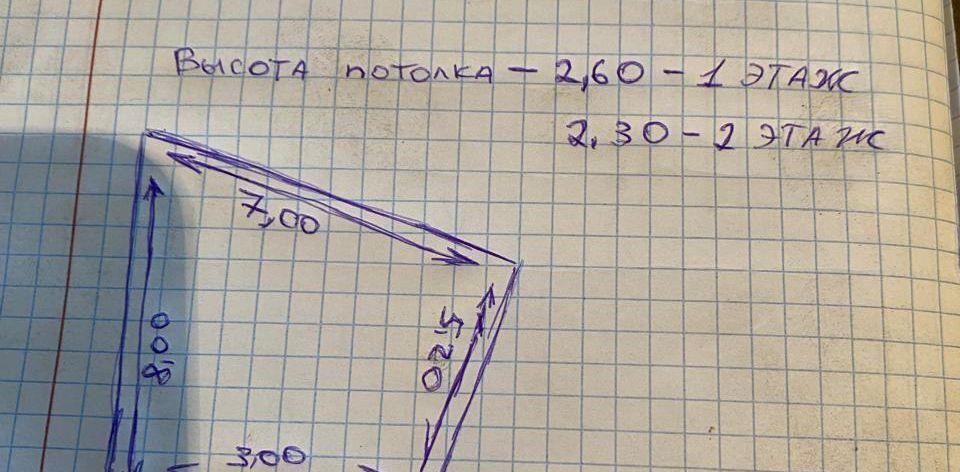 Высота потолка - 2,60 - 1 этаж
2.30 - 2 этаж
7,00
8,00
5,20
3,00